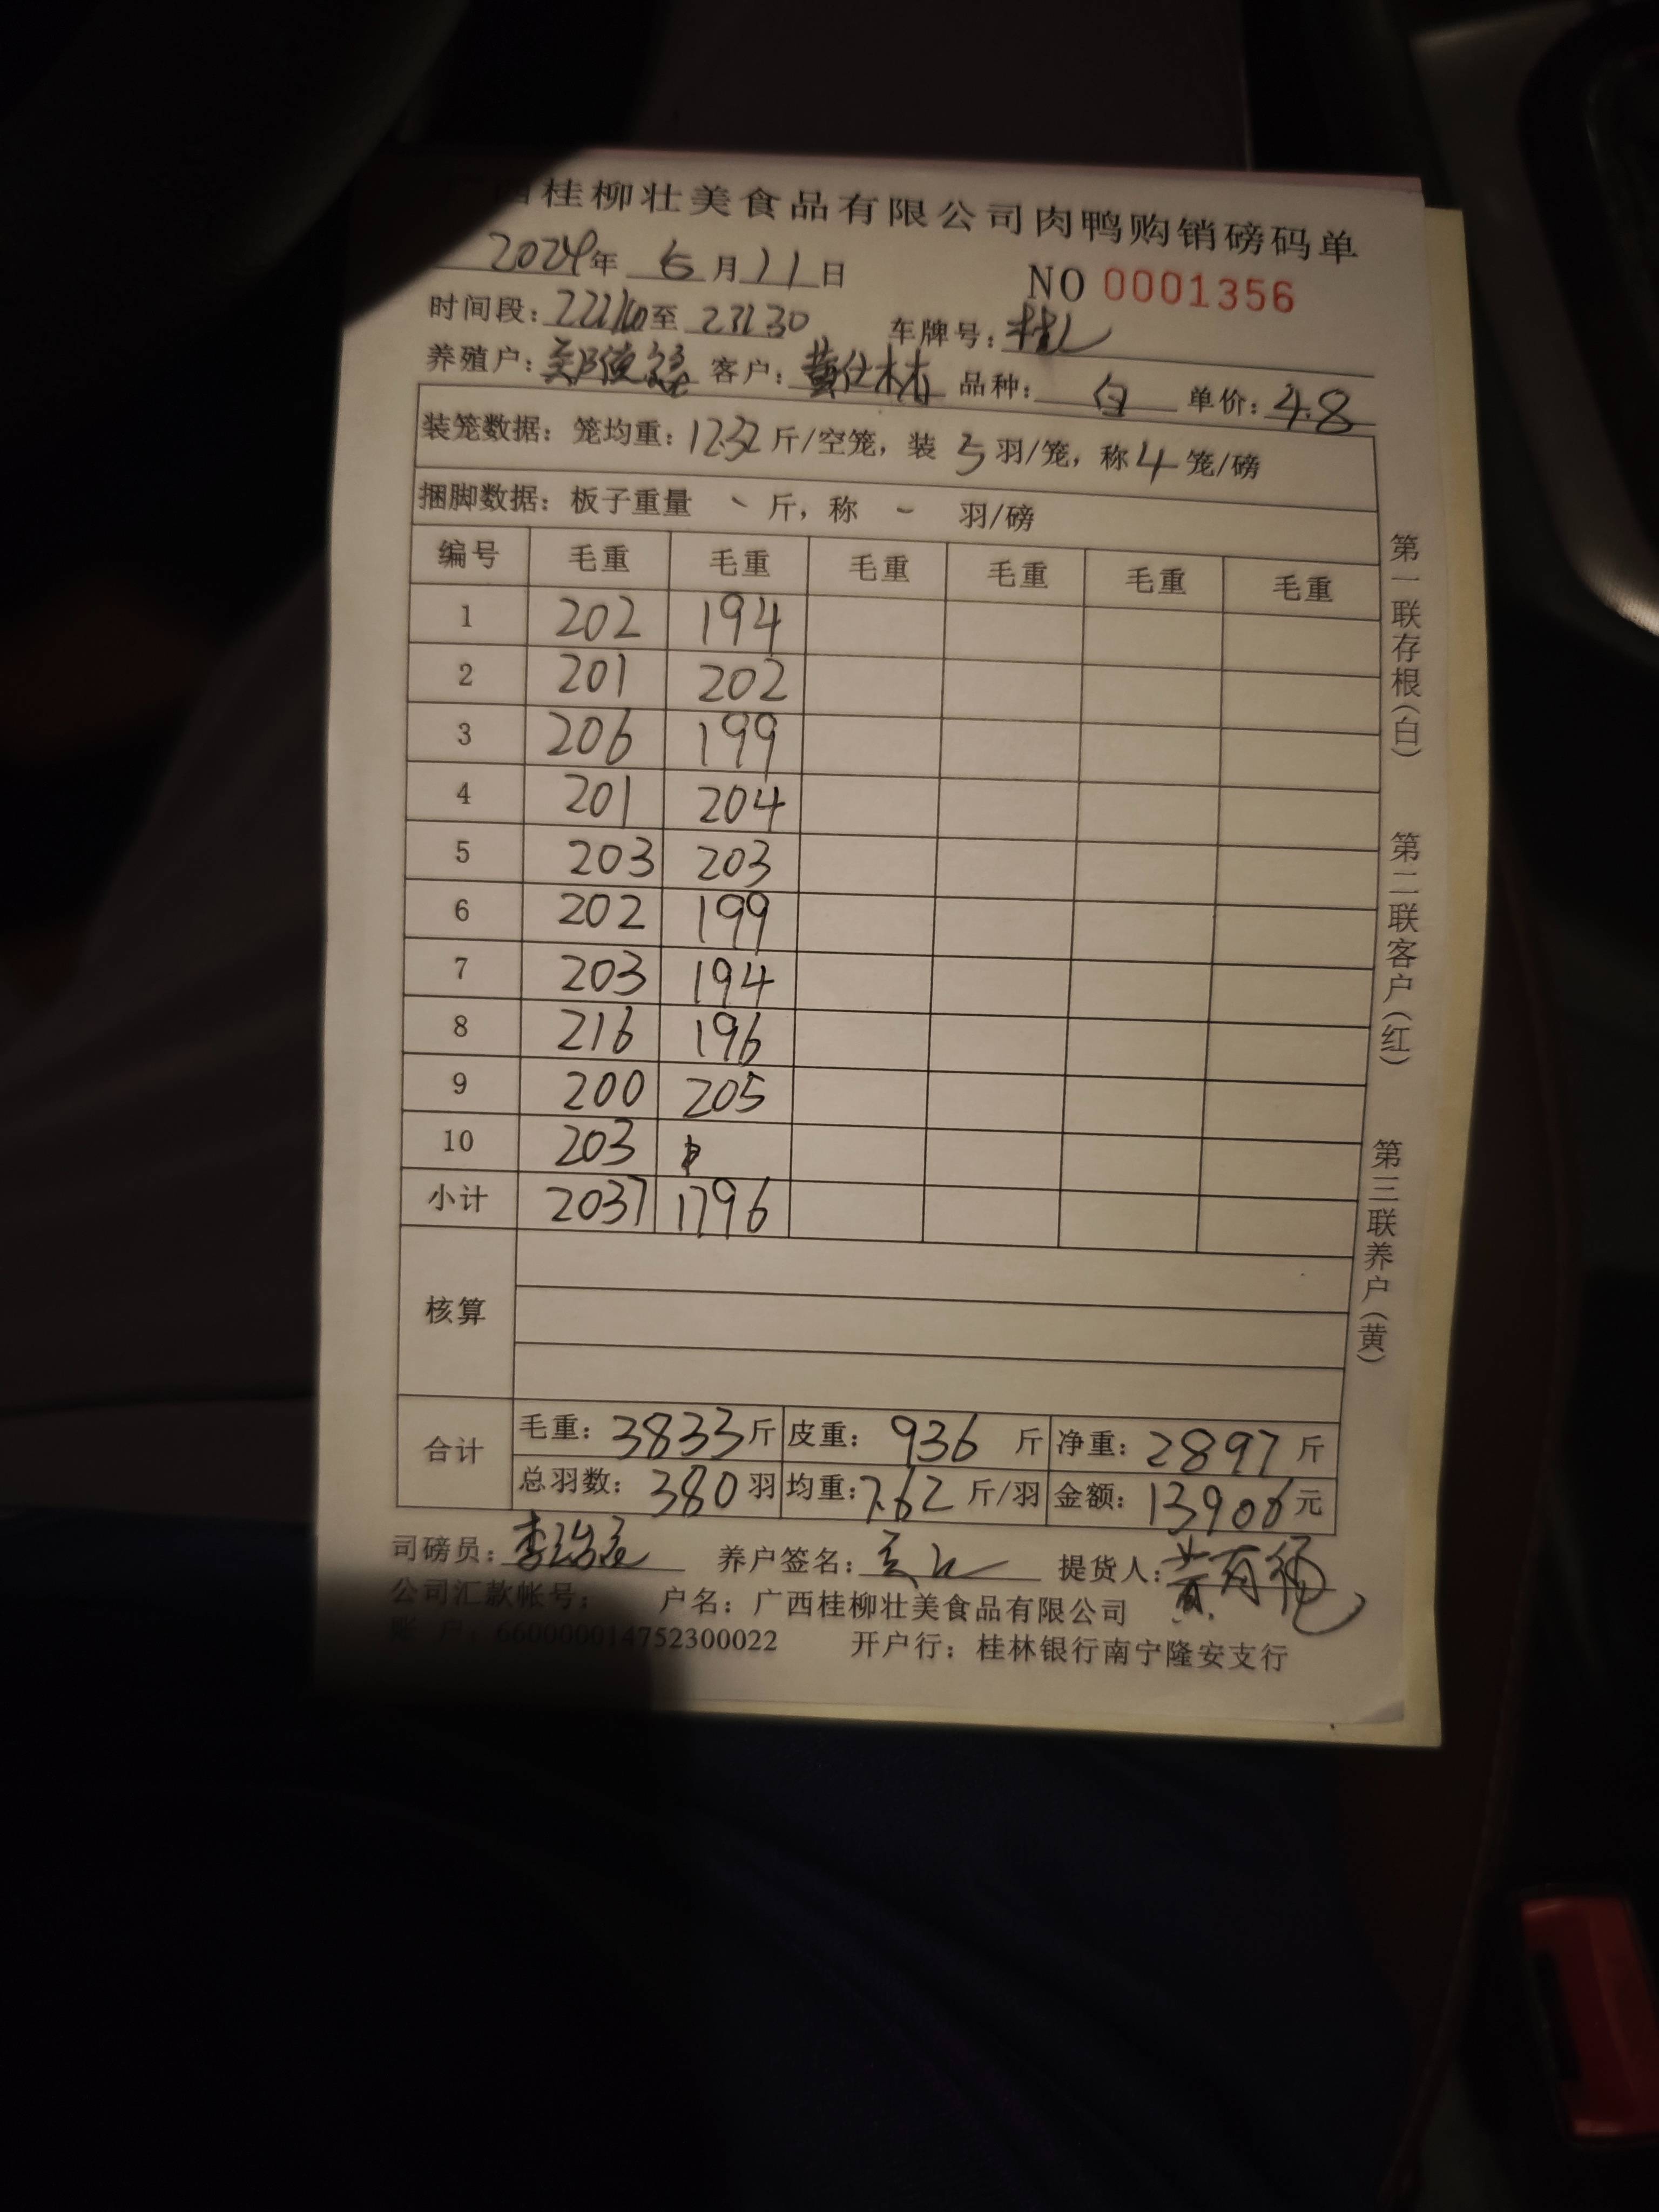 西桂柳壮美食品有限公司肉鸭购销磅码单
2024年 5月11日 NO 0001356
时间段: 至 车牌号:
养殖户: 客户:黄仕林 品种:白 单价:4.8
装笼数据: 笼均重:12.32斤/空笼, 装5羽/笼, 称4笼/磅
捆脚数据: 板子重量 斤, 称 - 羽/磅
编号 毛重 毛重 毛重 毛重 毛重 毛重
1 202 194
2 201 202
3 206 199
4 201 204
5 203 203
6 202 199
7 203 194
8 216 196
9 200 205
10 203
小计 2037 1796
核算
合计 毛重: 3833斤 皮重: 936 斤 净重: 2897 斤
总羽数: 380羽 均重:7.62 斤/羽 金额: 13906元
司磅员: 养户签名: 提货人:
公司汇款帐号: 户名: 广西桂柳壮美食品有限公司
账 户: 660000014752300022 开户行: 桂林银行南宁隆安支行
第一联存根(白) 第二联客户(红) 第三联养户(黄)